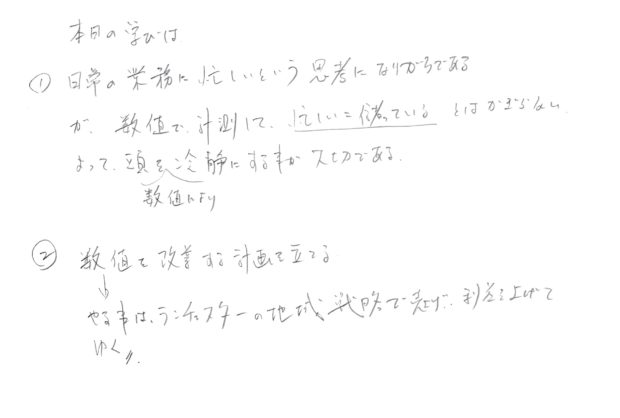 本日の学びは
① 日常の業務に忙しいという思考になりがちである
が、数値で計測して、忙しい=儲っている とはかぎらない
よって、頭を冷静にする事が大切である。
数値により
② 数値を改善する計画を立てる
やる事は、ランチェスターの地域戦略で 利益を上げて
ゆく